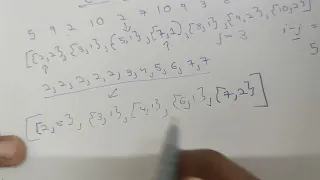 5 9 2 10 2 7 10 9 3
[{2,2},{3,1},{5,1},{7,2},{8,1},{9,2},{10,2}]
j = 3
i-j =
5
2, 2, 2, 2, 2, 3, 4, 5, 6, 7, 7
[{2,5}, {3,1}, {4,1}, {6,1}, {7,2}]